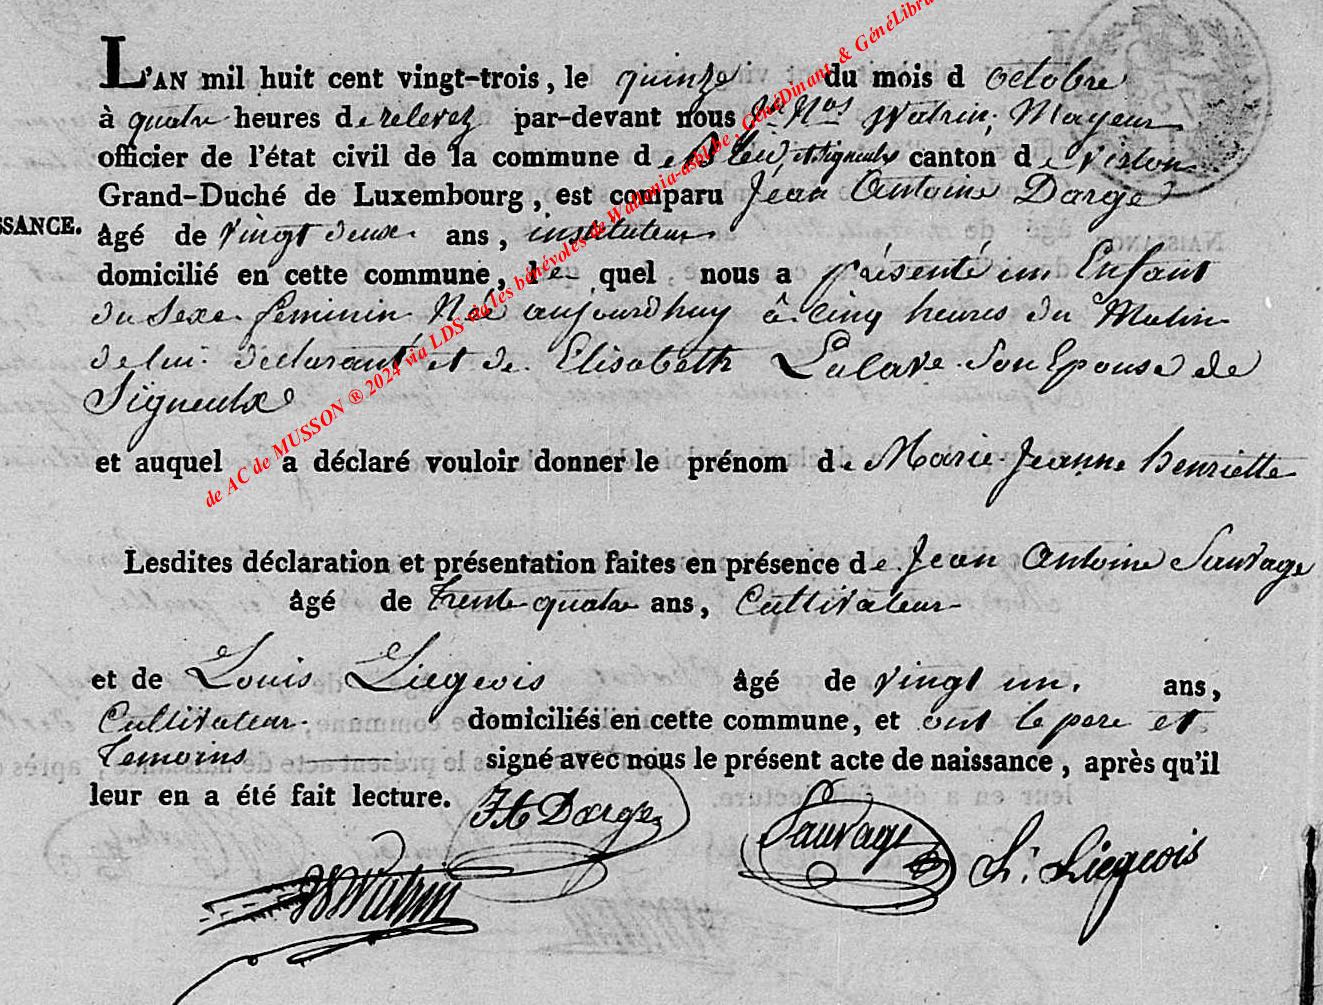 L'AN mil huit cent vingt-trois, le quinze du mois d octobre
à quatre heures de relevez par-devant nous Watrin, Mayeur
officier de l'état civil de la commune de Bleid et Signeulx canton de Virton
Grand-Duché de Luxembourg, est comparu Jean Antoine Darge
SSANCE.
âgé de vingt deux ans, instituteur
domicilié en cette commune, le quel nous a présenté un Enfant
du sexe feminin Née aujourdhuy à cinq heures du Matin
de lui déclarant et de Elisabeth Lalave son Epouse de
Signeulx
et auquel a déclaré vouloir donner le prénom de Marie Jeanne henriette
Lesdites déclaration et présentation faites en présence de Jean Antoine Sauvage
âgé de trente quatre ans, Cultivateur
et de Louis Liegeois âgé de vingt un. ans,
Cultivateur domiciliés en cette commune, et ont le pere et
temoins signé avec nous le présent acte de naissance, après qu'il
leur en a été fait lecture. JA Darge
Sauvage
L. Liegeois
Watrin
de AC de MUSSON ® 2024 via LDS via les bénévoles de Wallonia-asbl.be, GénéDinant, & GénéLibra